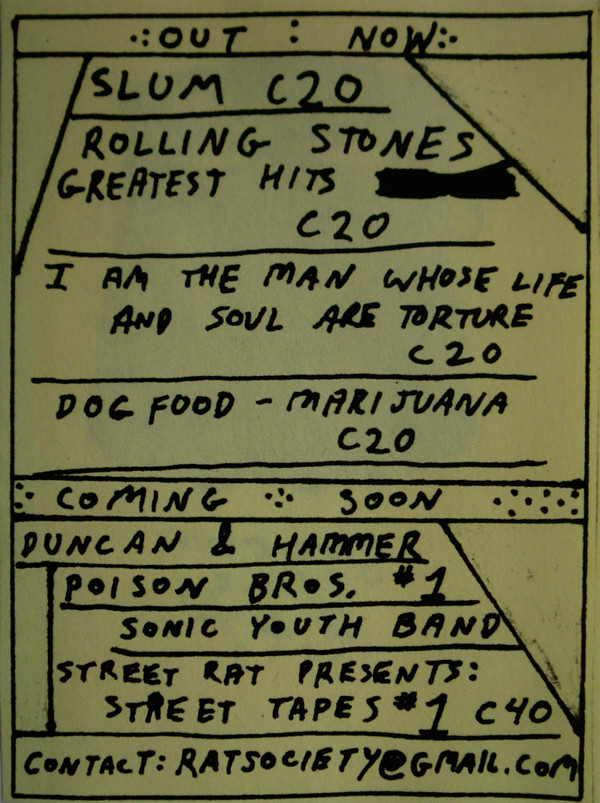 OUT : NOW
SLUM C20
ROLLING STONES
GREATEST HITS
C20
I AM THE MAN WHOSE LIFE
AND SOUL ARE TORTURE
C20
DOG FOOD - MARIJUANA
C20
COMING SOON
DUNCAN & HAMMER
POISON BROS. #1
SONIC YOUTH BAND
STREET RAT PRESENTS:
STREET TAPES #1 C40
CONTACT: RATSOCIETY@GMAIL.COM